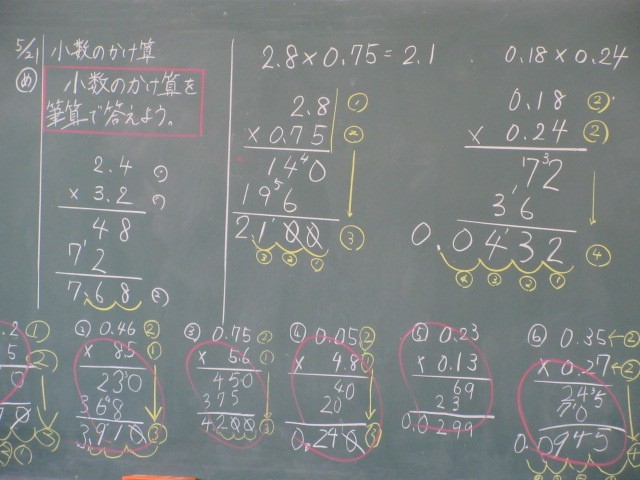 5/21 小数のかけ算
め 小数のかけ算を
筆算で答えよう。
2.4 ①
× 3.2 ①
48
7'2
7.68 ②
2.8×0.75=2.1
2.8 ①
×0.75 ②
14⁴0
19⁵6
2.100 ③
③ ② ①
0.18×0.24
0.18 ②
× 0.24 ②
7³2
3'6
0.0432 ④
④ ③ ② ①
.2 ①
5 ②
0
10 ③
② ①
② 0.46 ②
× 85 ①
230
368
3.910 ③
③ 0.75 ②
× 5.6 ①
450
375
4200 ③
④ 0.05 ②
× 4.8 ①
40
20
0.240 ③
⑤ 0.23
× 0.13
69
23
0.0299
⑥ 0.35←②
× 0.27←②
245
70
0.0945 ④